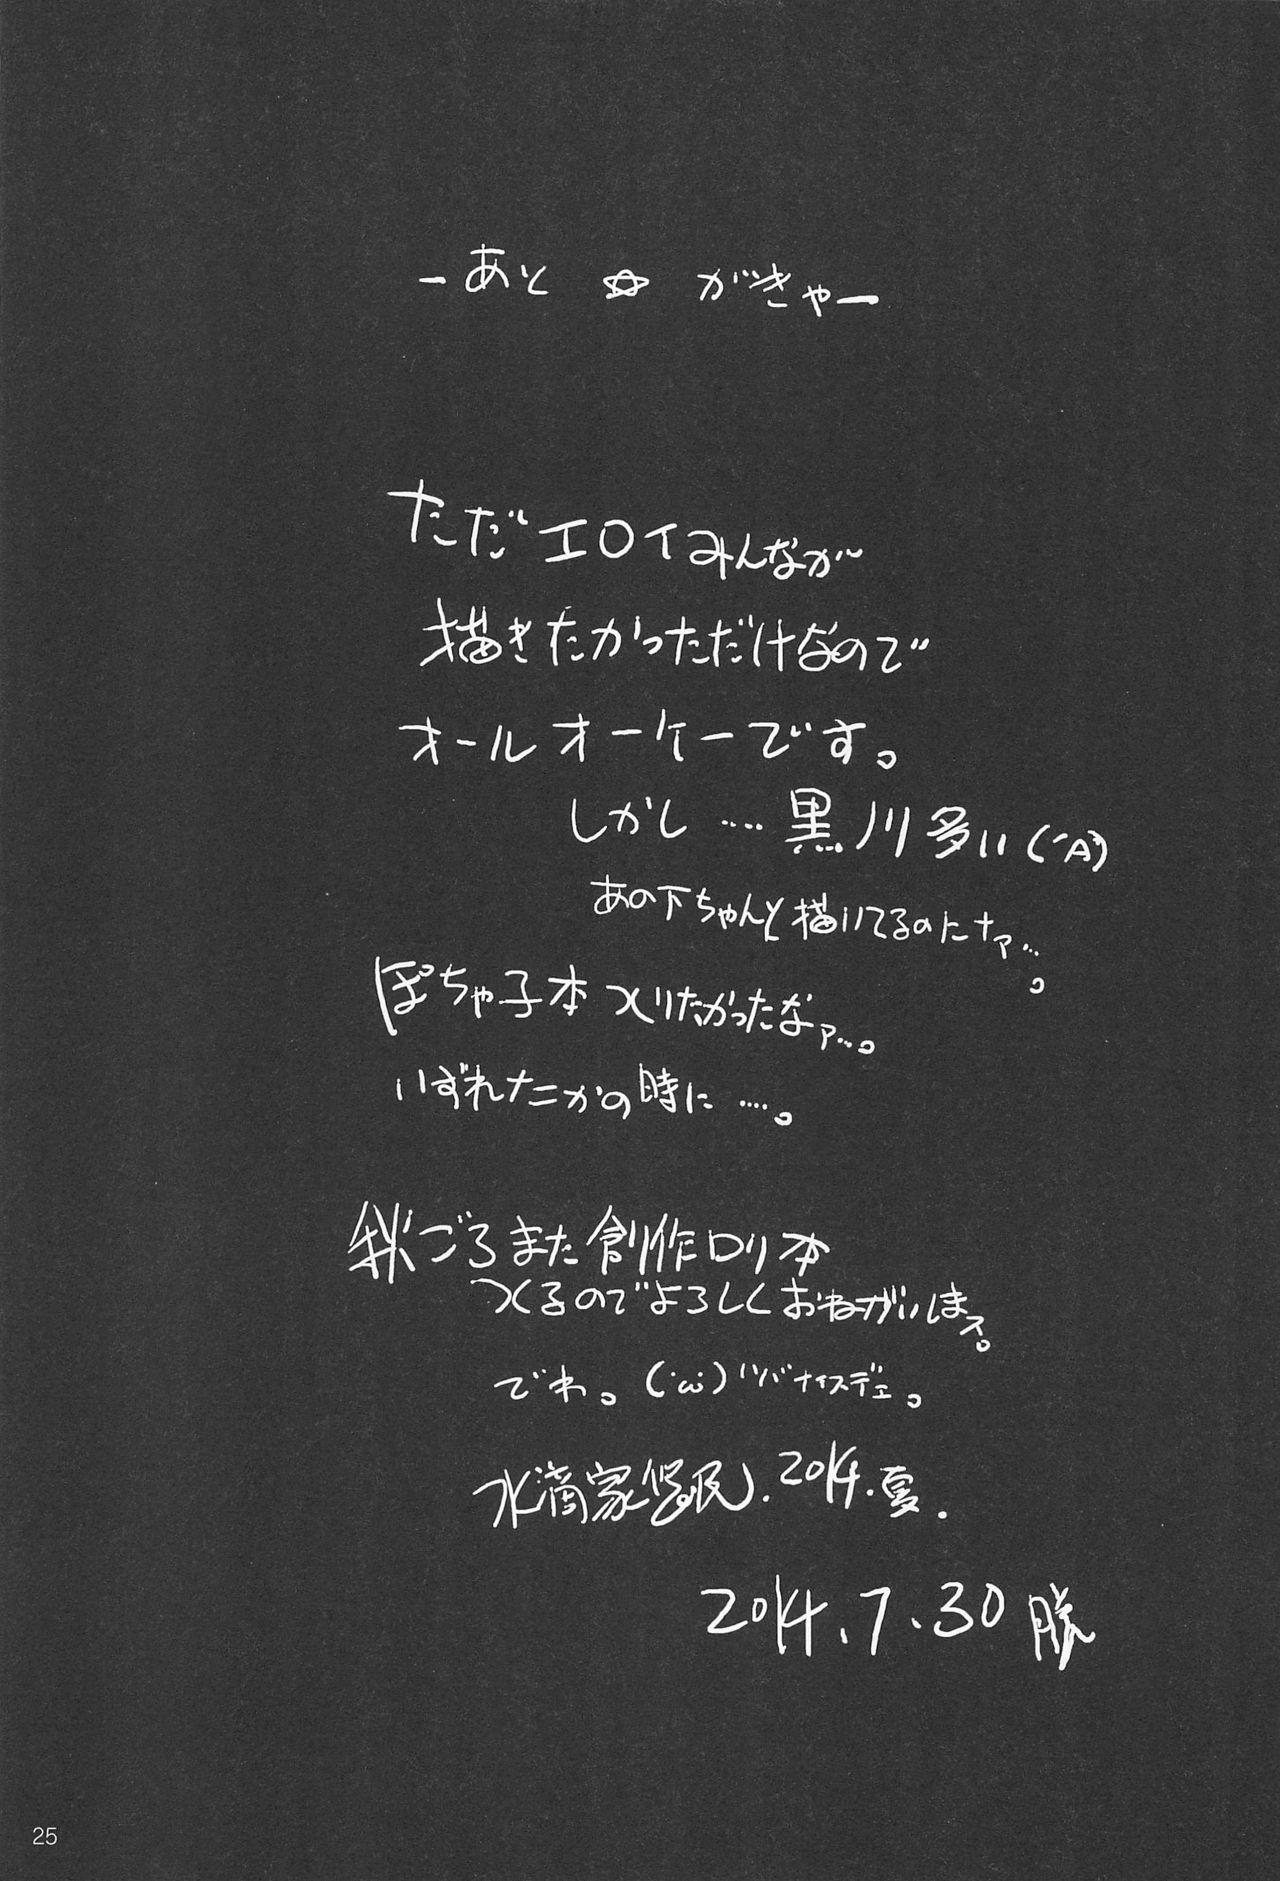 -あと☆がきゃー
ただエロイみんなが
描きたかっただけなので
オールオーケーです。
しかし‥‥黒ノリ多い(´A`)
あの下ちゃんと描いてるのにナァ…。
ぽちゃ子本つくりたかったなァ…。
いずれなにかの時に‥‥。
秋ごろまた創作ロリ本
つくるのでよろしくおねがいしまス。
でわ。(・ω・)ハバナイスデェ。
水滴家 . 2014.夏.
2014.7.30
25